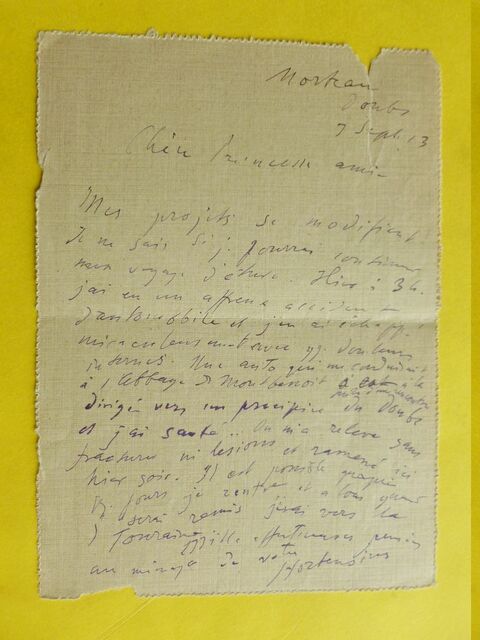 Morteau
Doubs
7 Sept. 13
Chère Princesse amie
Mes projets se modifient
Je ne sais si je pourrai continuer
mon voyage d'étude. Hier à 3h.
j'ai eu un affreux accident
d'automobile et j'en ai échappé
miraculeusement avec qq. douleurs
internes. Une auto qui me conduisait
à l'Abbaye de Montbenoit
dirigée vers un précipice du Doubs
et j'ai sauté... On m'a relevé sans
fractures ni lésions et ramené ici
hier soir. Il est possible
qq. jours je rentre et
serai remis j'irai vers la
Touraine. Mille affectueuses pensées
au mirage de votre
Hortensius